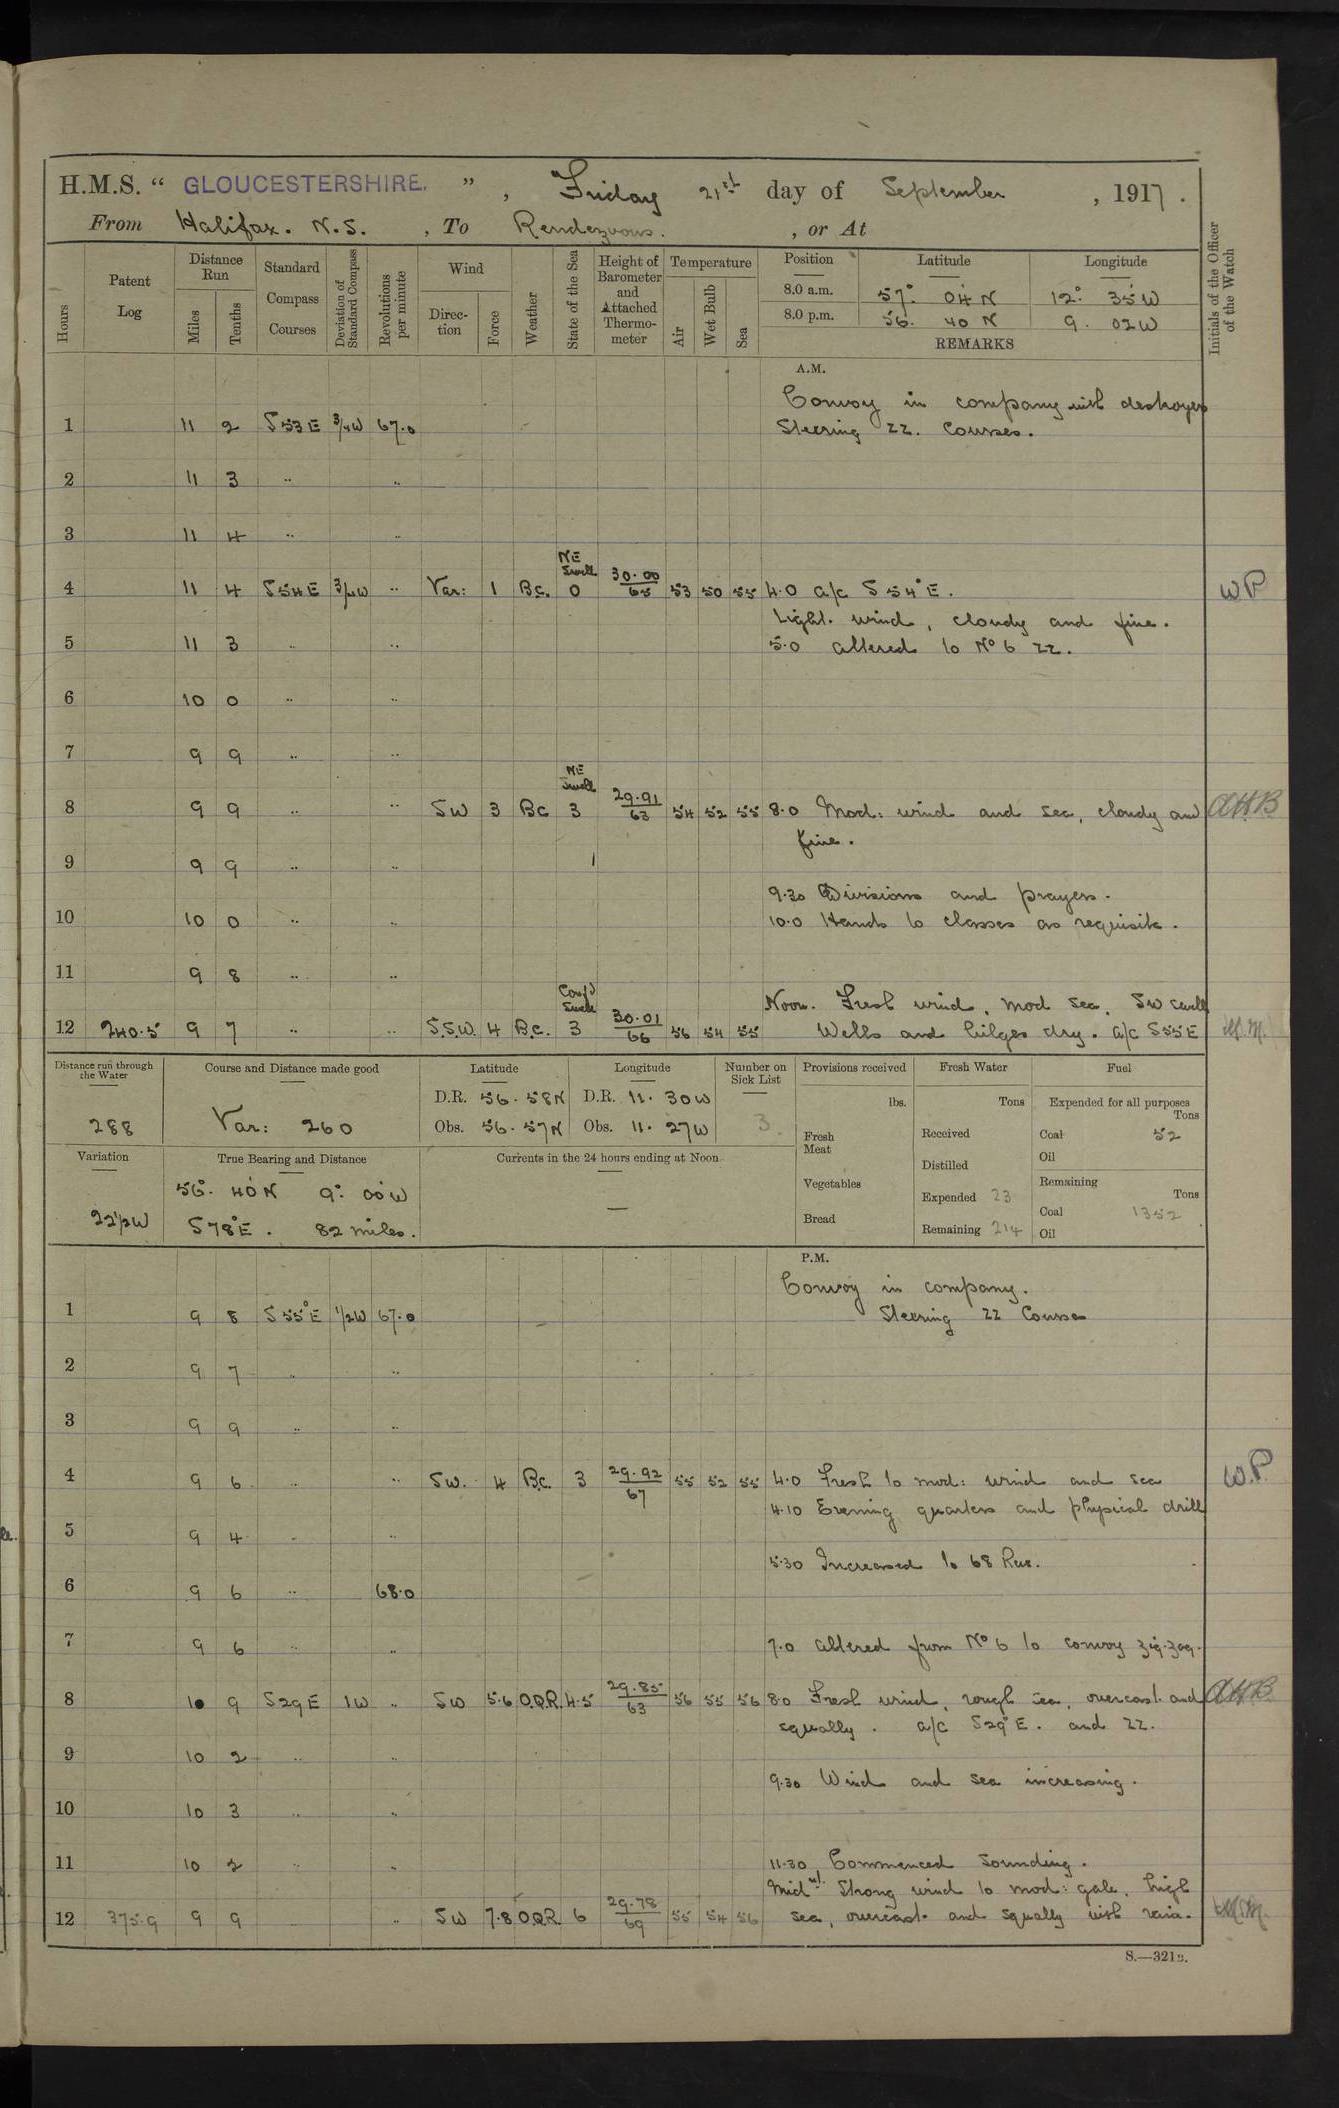 H.M.S. “ GLOUCESTERSHIRE. ” , Friday 21st day of September , 1917 .
From Halifax. N.S. , To Rendezvous. , or At
Hours
Patent Log
Distance Run
Miles
Tenths
Standard Compass Courses
Deviation of Standard Compass
Revolutions per minute
Wind
Direction
Force
Weather
State of the Sea
Height of Barometer and Attached Thermometer
Temperature
Air
Wet Bulb
Sea
Position Latitude Longitude
8.0 a.m. 57° 04 N 12° 35 W
8.0 p.m. 56. 40 N 9. 02 W
REMARKS
Initials of the Officer of the Watch
A.M.
Convoy in company with destroyers
1 11 2 S 53 E 3/4 W 67.0 Steering ZZ. Courses.
2 11 3 .. ..
3 11 4 .. ..
NE Swell
4 11 4 S 54 E 3/4 W .. Var: 1 B.C. 0 30.00/65 53 50 55 4.0 a/c S 54° E. W P
Light. wind, cloudy and fine.
5 11 3 .. .. 5.0 altered to No 6 ZZ.
6 10 0 .. ..
7 9 9 .. ..
NE Swell
8 9 9 .. .. SW 3 BC 3 29.91/63 54 52 55 8.0 Mod: wind and sea, cloudy and AHB
fine.
9 9 9 .. ..
9.30 Divisions and prayers.
10 10 0 .. .. 10.0 Hands to classes as requisite.
11 9 8 .. ..
Conf'd Swell Noon. Fresh wind, mod sea. SW swell
12 240.5 9 7 .. .. S.S.W. 4 B.C. 3 30.01/66 56 54 55 Wells and bilges dry. a/c S55E
Distance run through the Water
288
Course and Distance made good
Var: 260
Latitude
D.R. 56. 58N
Obs. 56. 57N
Longitude
D.R. 11. 30W
Obs. 11. 27W
Number on Sick List
3
Provisions received
lbs.
Fresh Meat
Vegetables
Bread
Fresh Water
Tons
Received
Distilled
Expended 23
Remaining 214
Fuel
Expended for all purposes
Tons
Coal 52
Oil
Remaining
Tons
Coal 1352
Oil
Variation
22 1/2 W
True Bearing and Distance
56°. 40' N 9°. 00' W
S 78° E. 82 miles.
Currents in the 24 hours ending at Noon
—
P.M.
Convoy in company.
1 9 8 S 55° E 1/2 W 67.0 Steering ZZ Courses
2 9 7 .. ..
3 9 9 .. ..
4 9 6 .. .. SW. 4 B.C. 3 29.92/67 55 52 55 4.0 Fresh to mod: wind and sea W.P.
4.10 Evening quarters and physical drill
5 9 4 .. ..
5.30 Increased to 68 Rev.
6 9 6 .. 68.0
7 9 6 .. .. 7.0 altered from No 6 to convoy zig-zag.
8 10 9 S 29 E 1 W .. SW 5.6 O.Q.R. 4.5 29.85/63 56 55 56 8.0 Fresh wind, rough sea, overcast and AHB
squally. a/c S29° E. and ZZ.
9 10 2 .. ..
9.30 Wind and sea increasing.
10 10 3 .. ..
11 10 2 .. .. 11.30 Commenced sounding.
Midnt. Strong wind to mod: gale, high
12 375.9 9 9 .. SW 7.8 O.Q.R. 6 29.78/69 55 54 56 sea, overcast and squally with rain.
S.—321B.